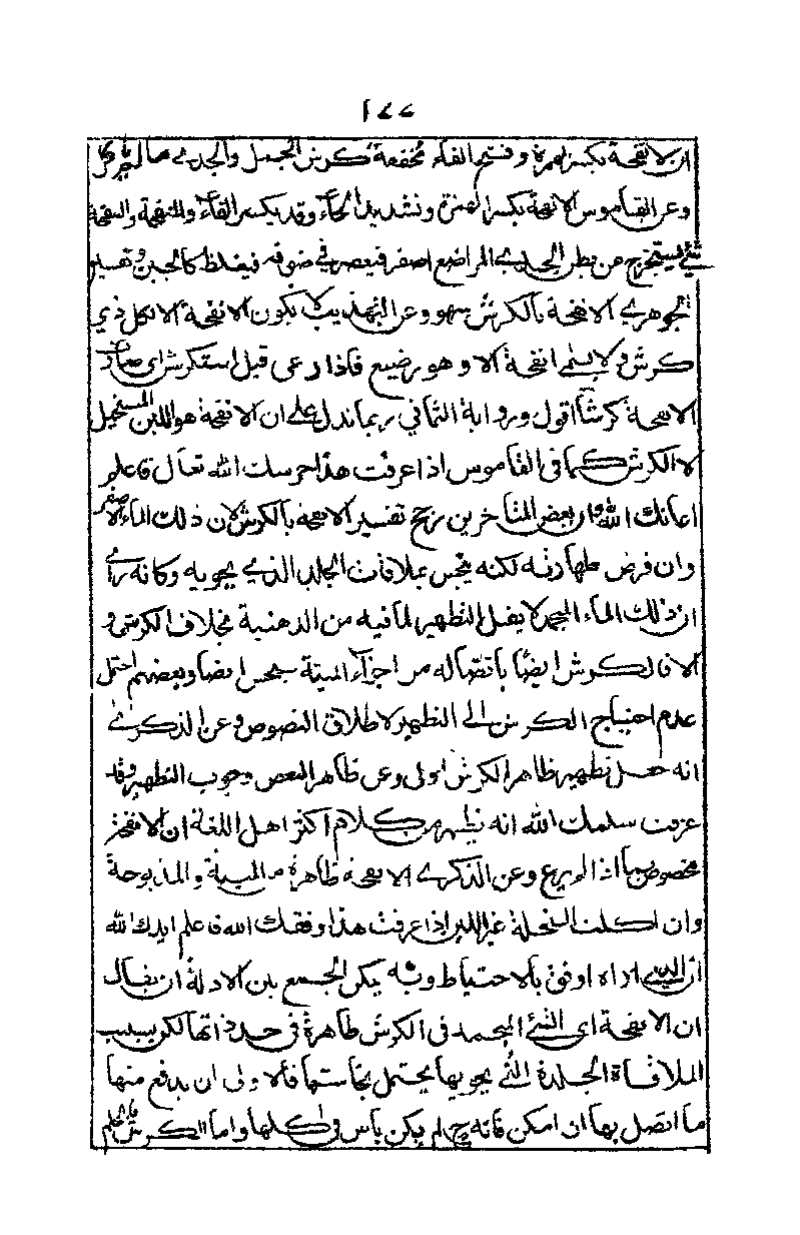 ١٧٧
ان الانفحة بكسر الهمزة و فتح الفاء مخففة كرش الجمل والجدي ما لم يأكل
وعن القاموس الانفحة بكسر الهمزة وتشديد الحاء وقد يكسر الفاء والمنفحة والبنفحة
شئ يستخرج من بطن الجدي الراضع اصفر فيعصر في صوفه فيغلظ كالجبن وتفسير
الجوهري الانفحة بالكرش سهو وعن التهذيب لا يكون الانفحة الا لكل ذي
كرش ولا يسمى انفحة الا وهو رضيع فاذا رعى قيل استكرش اي صار
الانفحة كرشا اقول ورواية الثمالي ربما تدل على ان الانفحة هو اللبن المستحيل
لا الكرش كما في القاموس اذا عرفت هذا حرسك الله تعالى فاعلم
اعانك الله وان بعض المتأخرين رجح تفسير الانفحة بالكرش لان ذلك الماء الاصفر
وان فرض طهارته لكنه ينجس بملاقات الجلد الذي يحويه وكانه رأى
ان ذلك الماء المجمد لا يقبل التطهير لما فيه من الدهنية بخلاف الكرش و
الا فالكرش ايضا باتصاله من اجزاء الميتة ينجس ايضا وبعضهم احتمل
عدم احتياج الكرش الى التطهير لاطلاق النصوص وعن الذكرى
انه جعل تطهير ظاهر الكرش اولى وعن ظاهر البعض وجوب التطهير وقد
عرفت سلمك الله انه يظهر من كلام اكثر اهل اللغة ان الانفحة
مخصوص بما اذا لم يرع وعن الذكرى الانفحة طاهرة من الميتة والمذبوحة
وان اكلت السخلة غير اللبن اذا عرفت هذا وفقك الله فاعلم ايدك الله
ان الذي اراه اوفق بالاحتياط وبه يمكن الجمع بين الادلة ان يقال
ان الانفحة اي الشئ المجمد في الكرش طاهرة في حد ذاتها لكن بسبب
الملاقاة الجلدة التي يحويها يحتمل نجاستها فالاولى ان يدفع منها
ما اتصل بها ان امكن فانه ح لم يكن باس في اكلها واما الكرش فالحكم